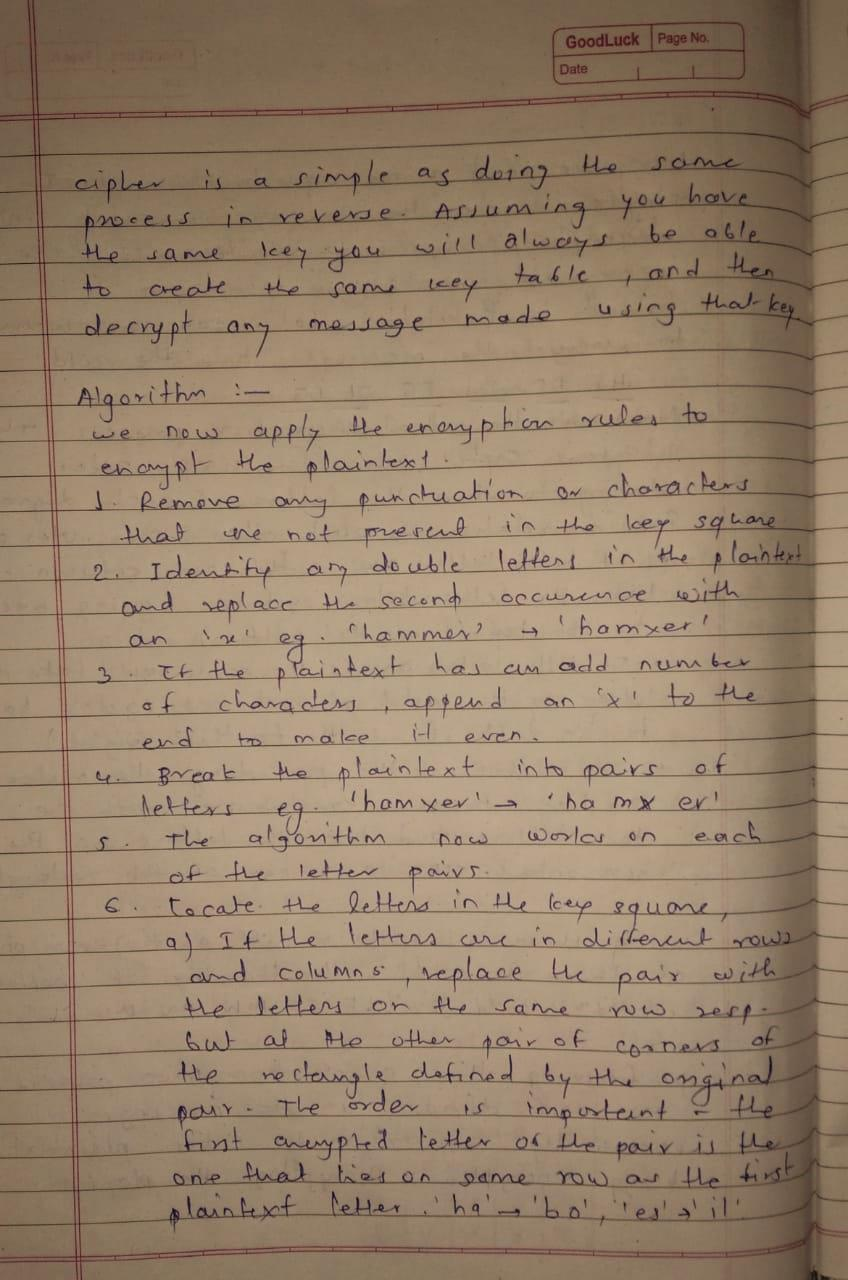 GoodLuck Page No.
Date
cipher is a simple as doing the same
process in reverse. Assuming you have
the same key you will always be able
to create the same key table, and then
decrypt any message made using that key
Algorithm :-
we now apply the encryption rules to
encrypt the plaintext.
1. Remove any punctuation or characters
that are not present in the key square
2. Identify any double letters in the plaintext
and replace the second occurence with
an 'x' eg. 'hammer' → 'hamxer'
3. If the plaintext has an add number
of characters, append an 'x' to the
end to make it even.
4. Break the plaintext into pairs of
letters eg. 'hamxer' → 'ha mx er'
5. The algorithm now works on each
of the letter pairs.
6. Locate the letters in the key square,
a) If the letters are in different rows
and columns, replace the pair with
the letters on the same row resp.
but at the other pair of corners of
the rectangle defined by the original
pair. The order is important - the
first encrypted letter of the pair is the
one that lies on same row as the first
plaintext letter. 'ha' → 'bo', 'es' → 'il'